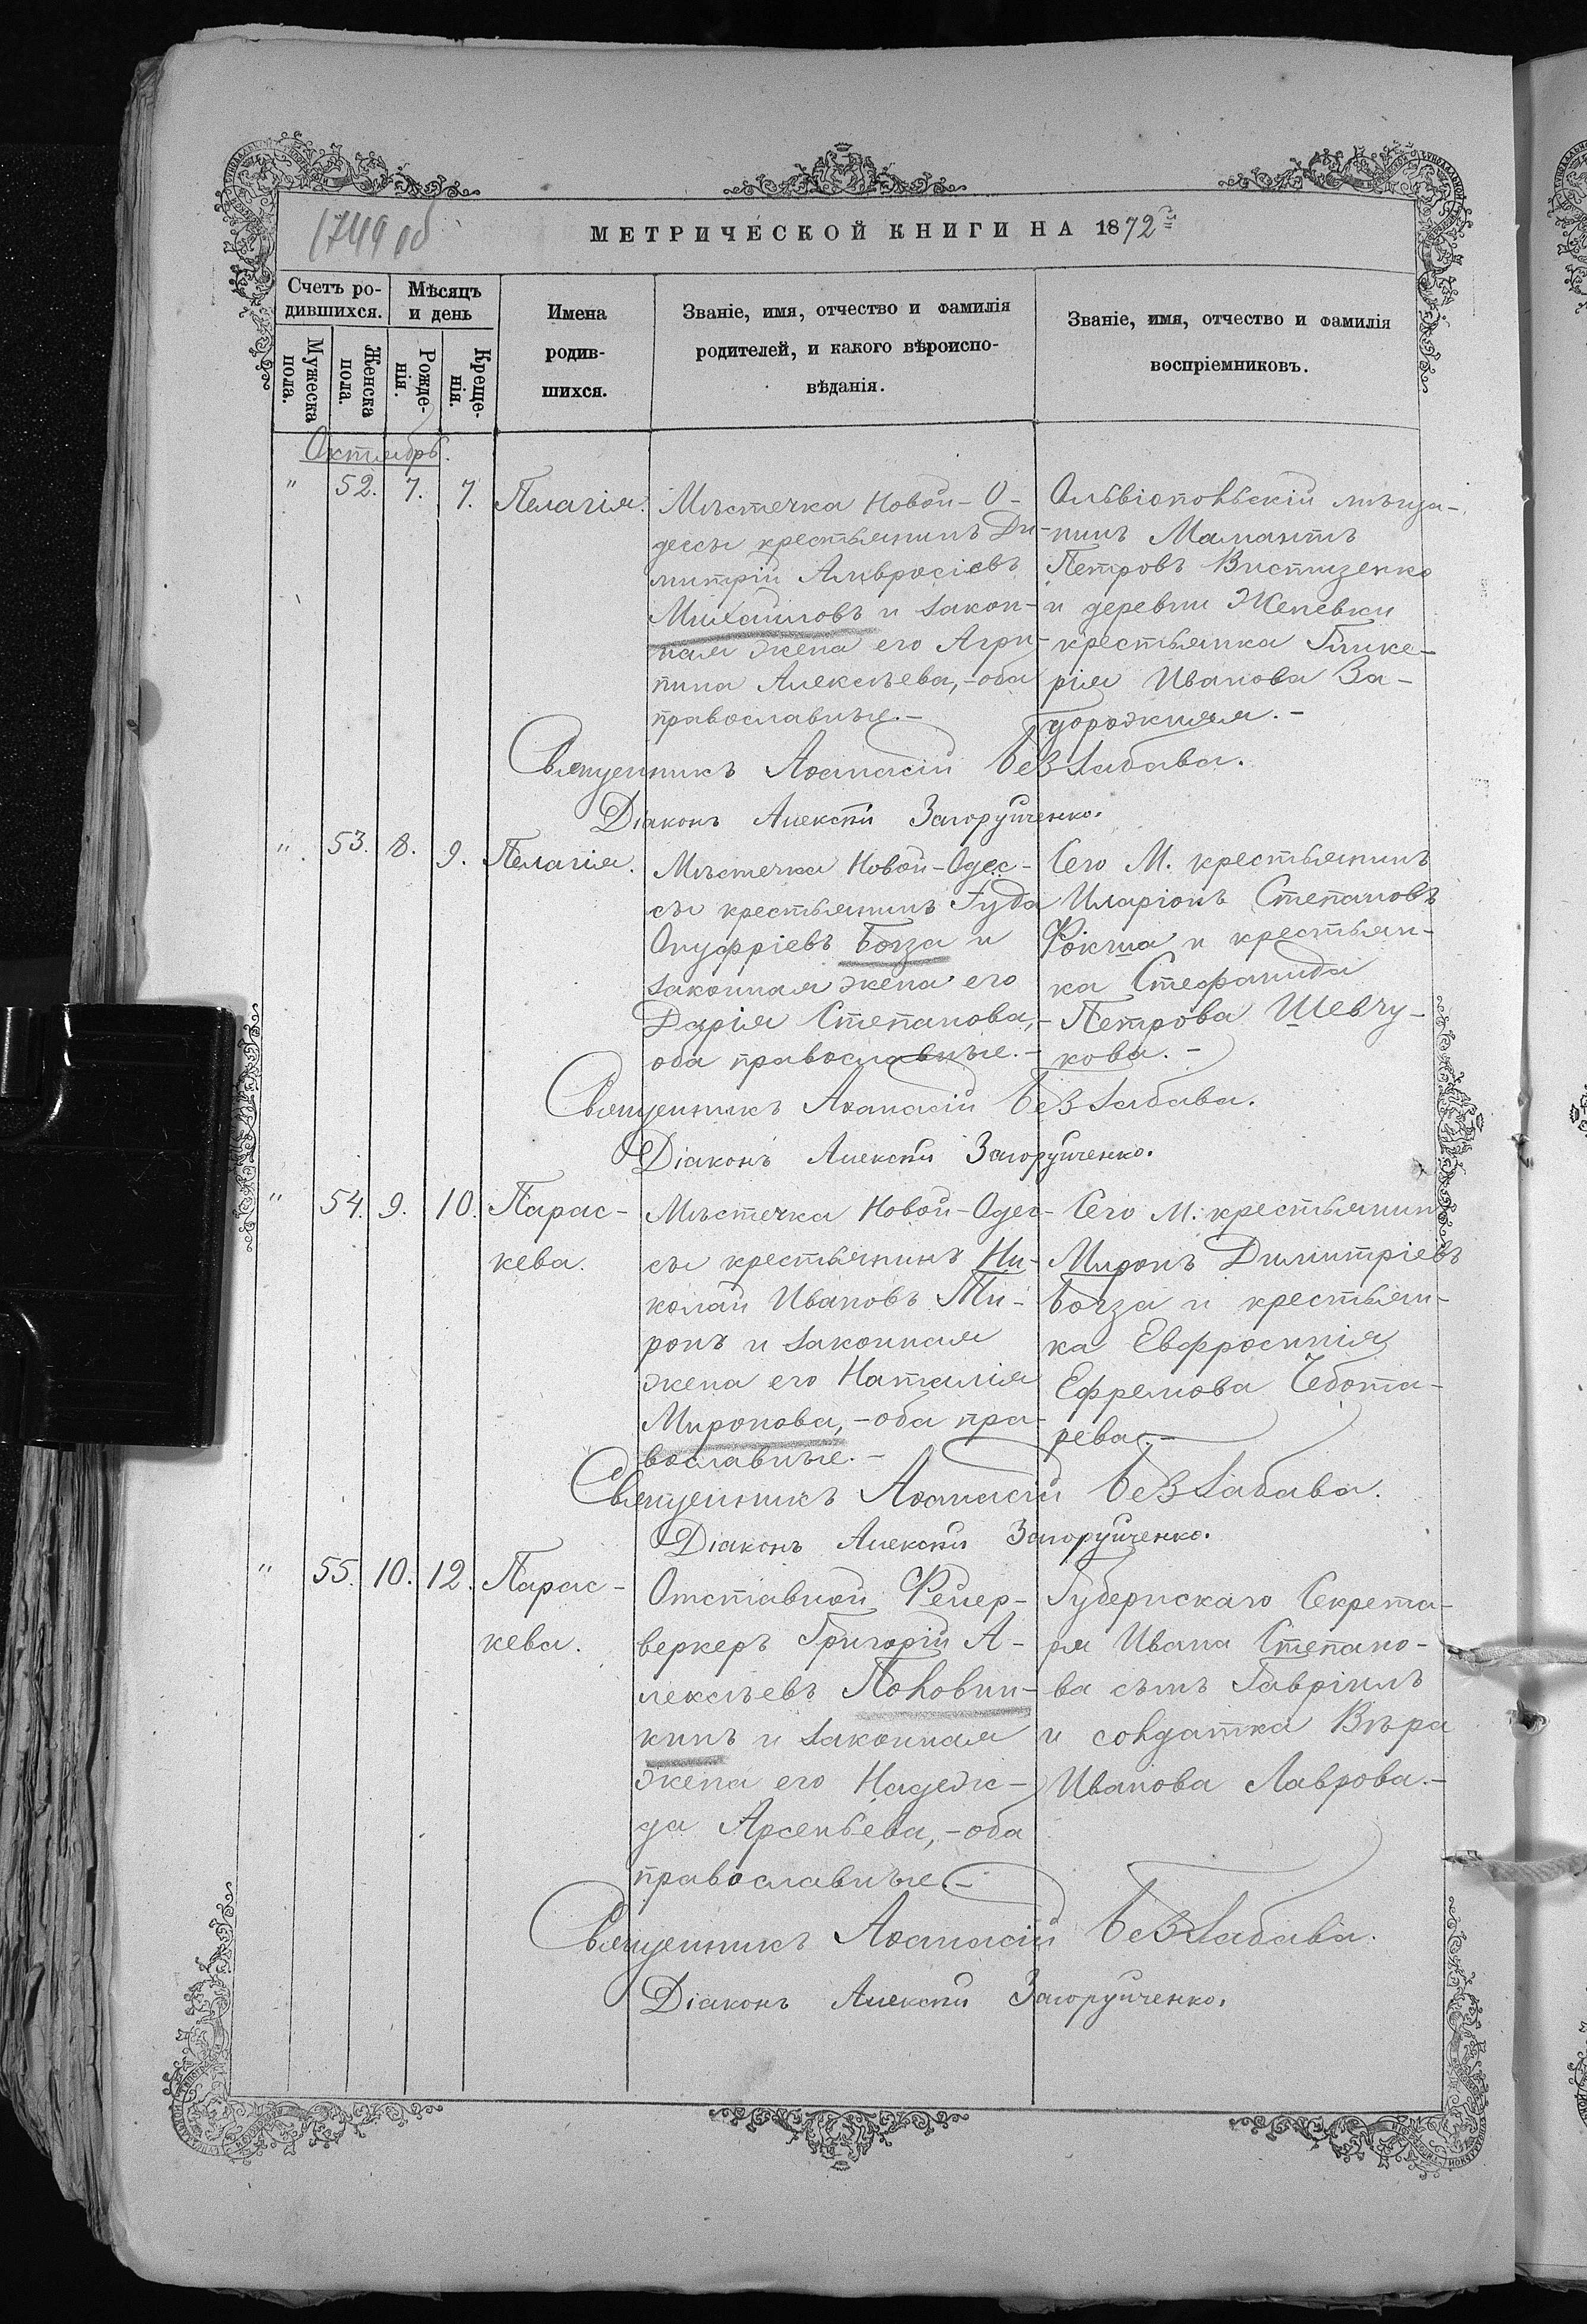 1749 об
МЕТРИЧЕСКОЙ КНИГИ НА 1872
Счетъ ро-
дившихся.
Мѣсяцъ
и день
Мужеска
пола.
Женска
пола.
Рожде-
нія.
Креще-
нія.
Имена
родив-
шихся.
Званіе, имя, отчество и фамилія
родителей, и какого вѣроиспо-
вѣданія.
Званіе, имя, отчество и фамилія
воспріемниковъ.
Октябрь.
" 52. 7. 7. Пелагія.
Мѣстечка Новой-О-
дессы крестьянинъ Ди-
митрій Амвросіевъ
Михайловъ и закон-
ная жена его Агри-
пина Алексѣева,-оба
православные.-
Ольвіопольскій мѣща-
нинъ Мамантъ
Петровъ
и деревни Женевки
крестьянка Глике-
рія Иванова За-
дорожняя.-
Священникъ Аѳанасій Беззабава.
Діаконъ Алексѣй Загоруйченко.
" 53. 8. 9. Пелагія.
Мѣстечка Новой-Одес-
сы крестьянинъ Іуда
Онуфріевъ Богза и
законная жена его
Дарія Степанова,-
оба православные.-
Сего М. крестьянинъ
Иларіонъ Степановъ
Фокша и крестьян-
ка Стефанида
Петрова Шевчу-
кова.-
Священникъ Аѳанасій Беззабава.
Діаконъ Алексѣй Загоруйченко.
" 54. 9. 10. Парас-
кева.
Мѣстечка Новой-Одес-
сы крестьянинъ Ни-
колай Ивановъ Ми-
ронъ и законная
жена его Наталія
Миронова,-оба пра-
вославные.-
Сего М. крестьянинъ
Миронъ Димитріевъ
Богза и крестьян-
ка Евфросинія
Ефремова Чебота-
рева.-
Священникъ Аѳанасій Беззабава.
Діаконъ Алексѣй Загоруйченко.
" 55. 10. 12. Парас-
кева.
Отставной Фейер-
веркеръ Григорій А-
лексѣевъ Половин-
кинъ и законная
жена его Надеж-
да Арсеньева,-оба
православные.-
Губернскаго Секрета-
ря Ивана Степано-
ва сынъ Гавріилъ
и солдатка Вѣра
Иванова Лаврова.-
Священникъ Аѳанасій Беззабава.
Діаконъ Алексѣй Загоруйченко.